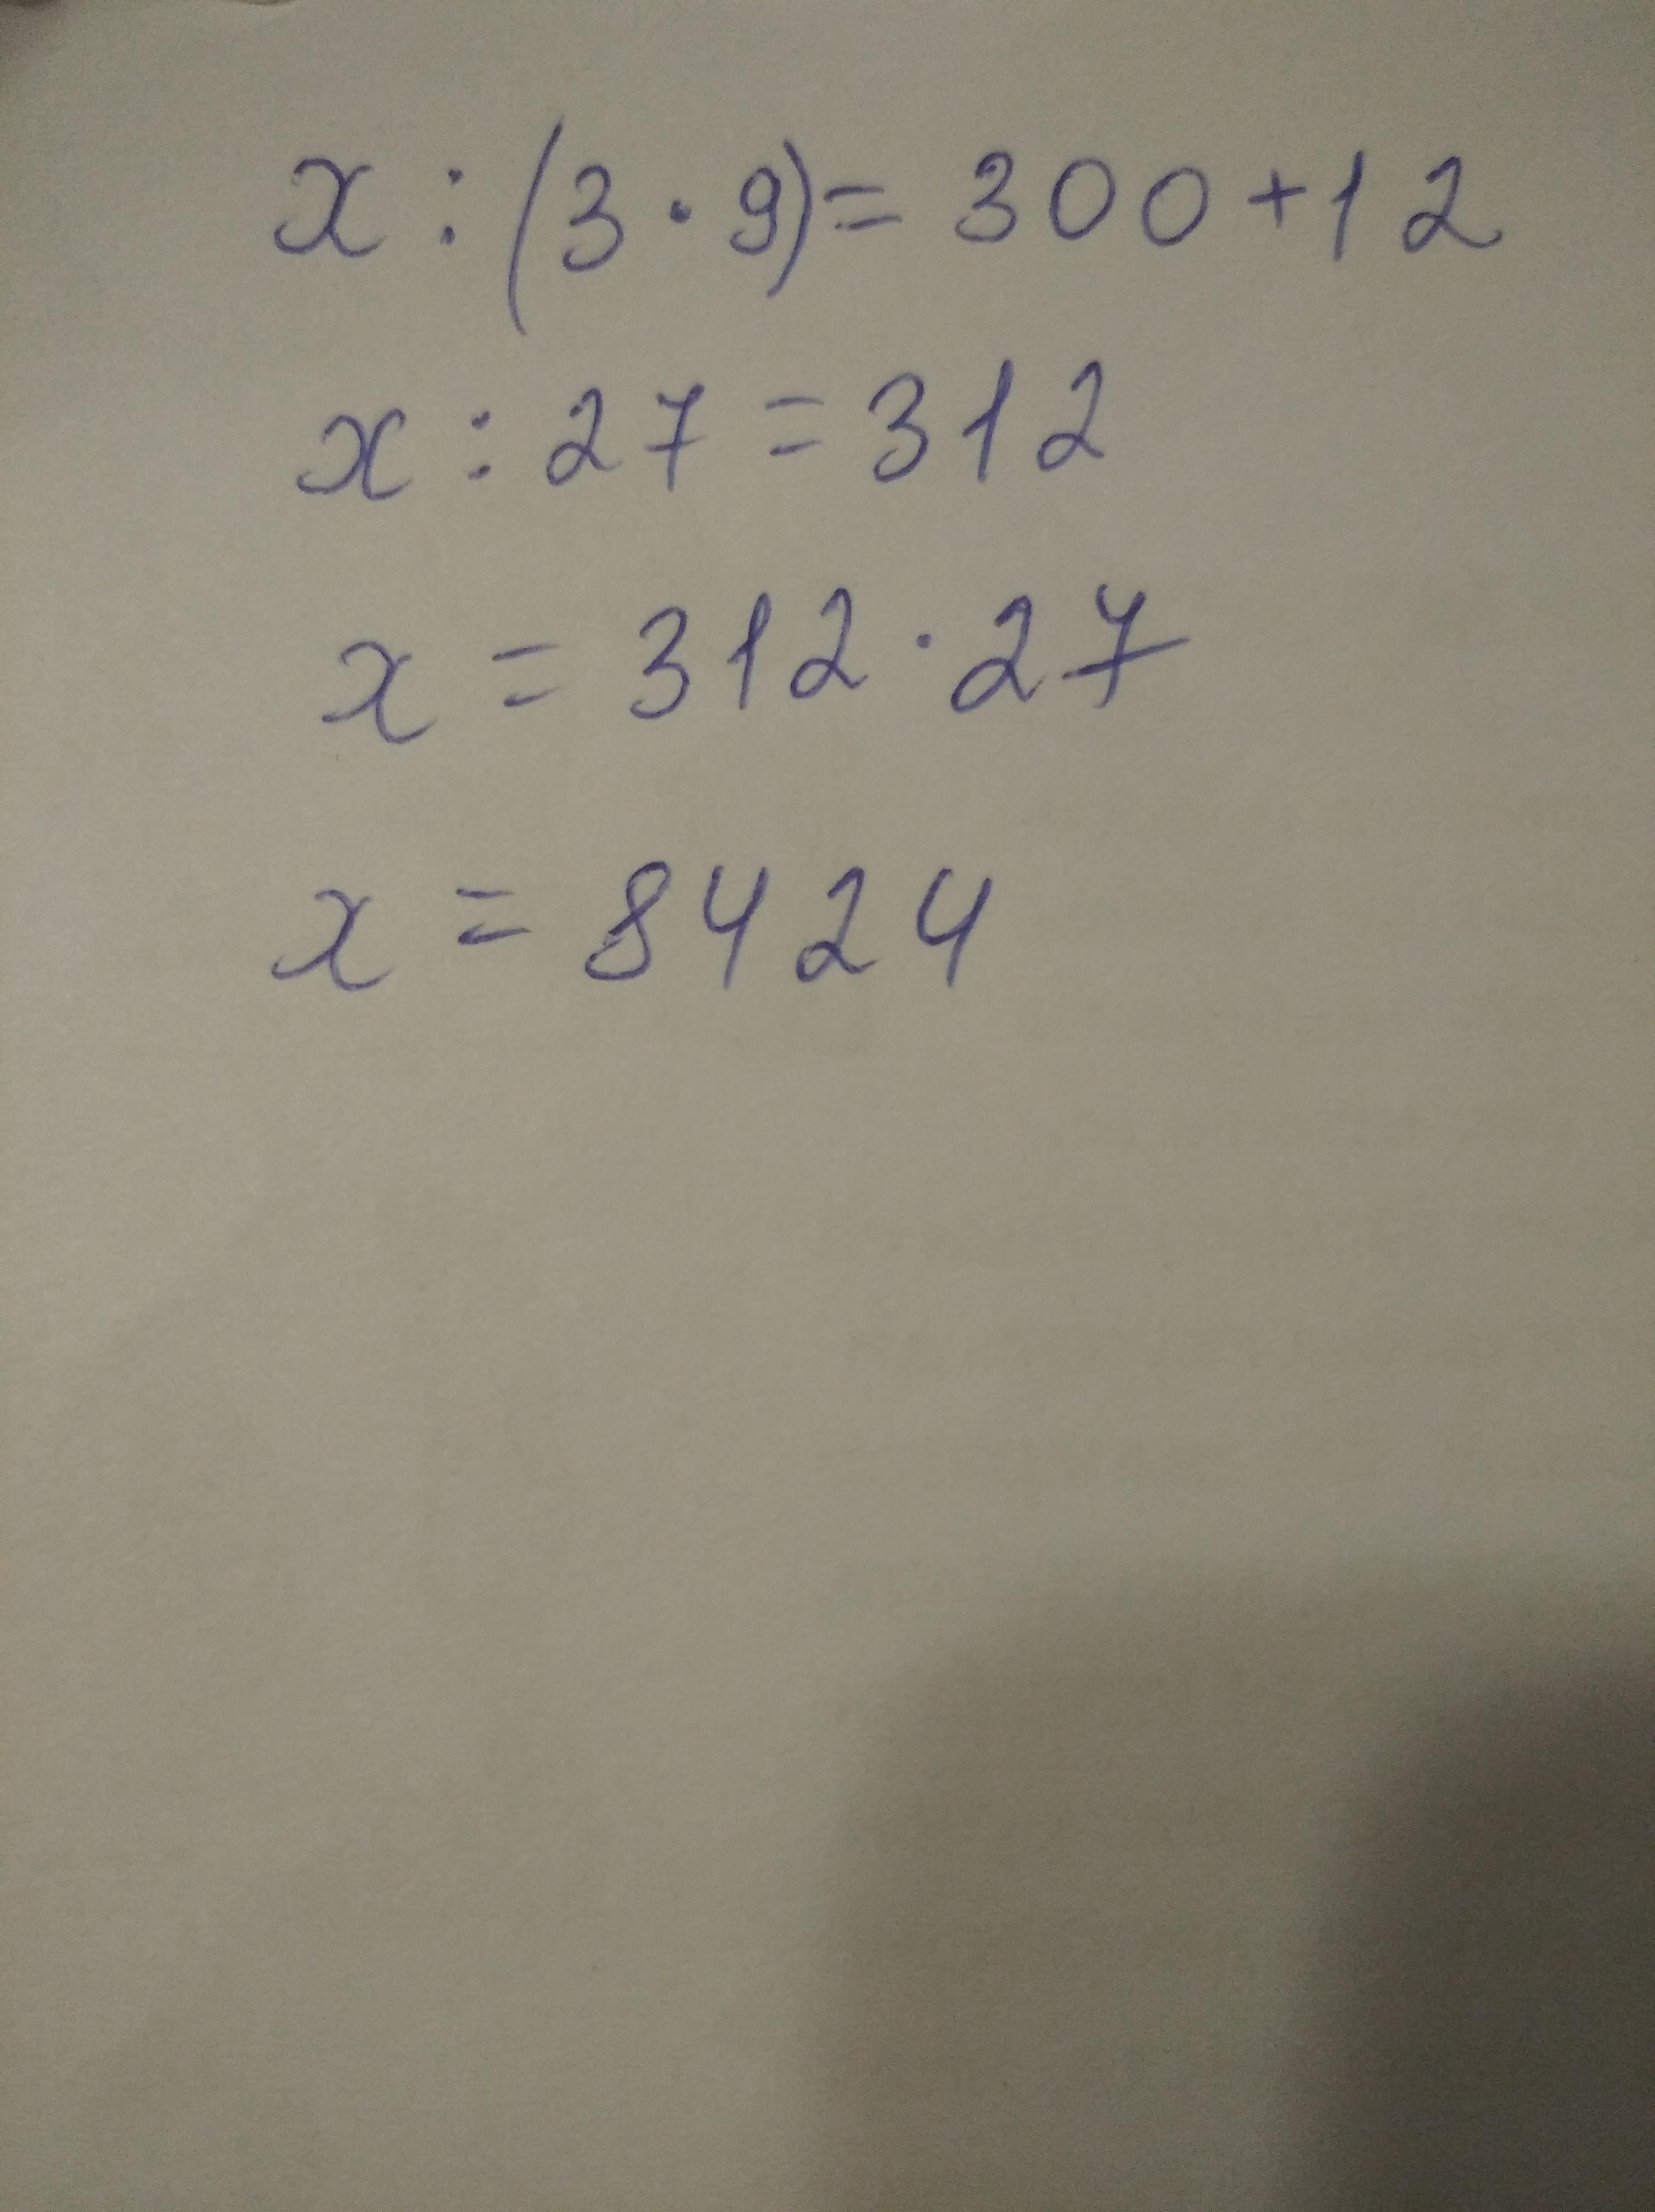 x : (3 · 9) = 300 + 12
x : 27 = 312
x = 312 · 27
x = 8424